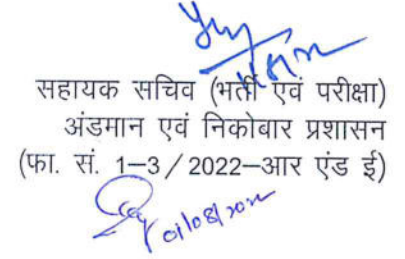 सहायक सचिव (भर्ती एवं परीक्षा)
अंडमान एवं निकोबार प्रशासन
(फा. सं. 1–3 / 2022–आर एंड ई)